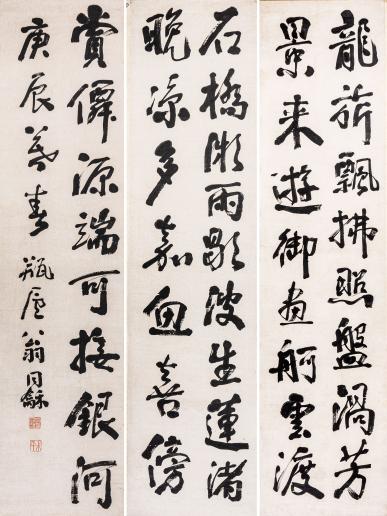 龍旂飄拂照盤渦芳
景來遊御畫舸雲渡
石橋微雨歇波生蓮渚
晚涼多嘉魚喜傍
賞僊源端可接銀河
庚辰暮春 瓶廬 翁同龢